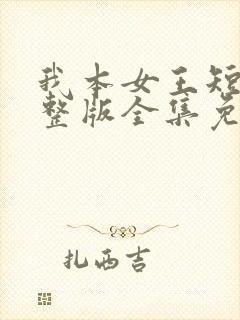 我本女王短
整版全集免
扎西吉